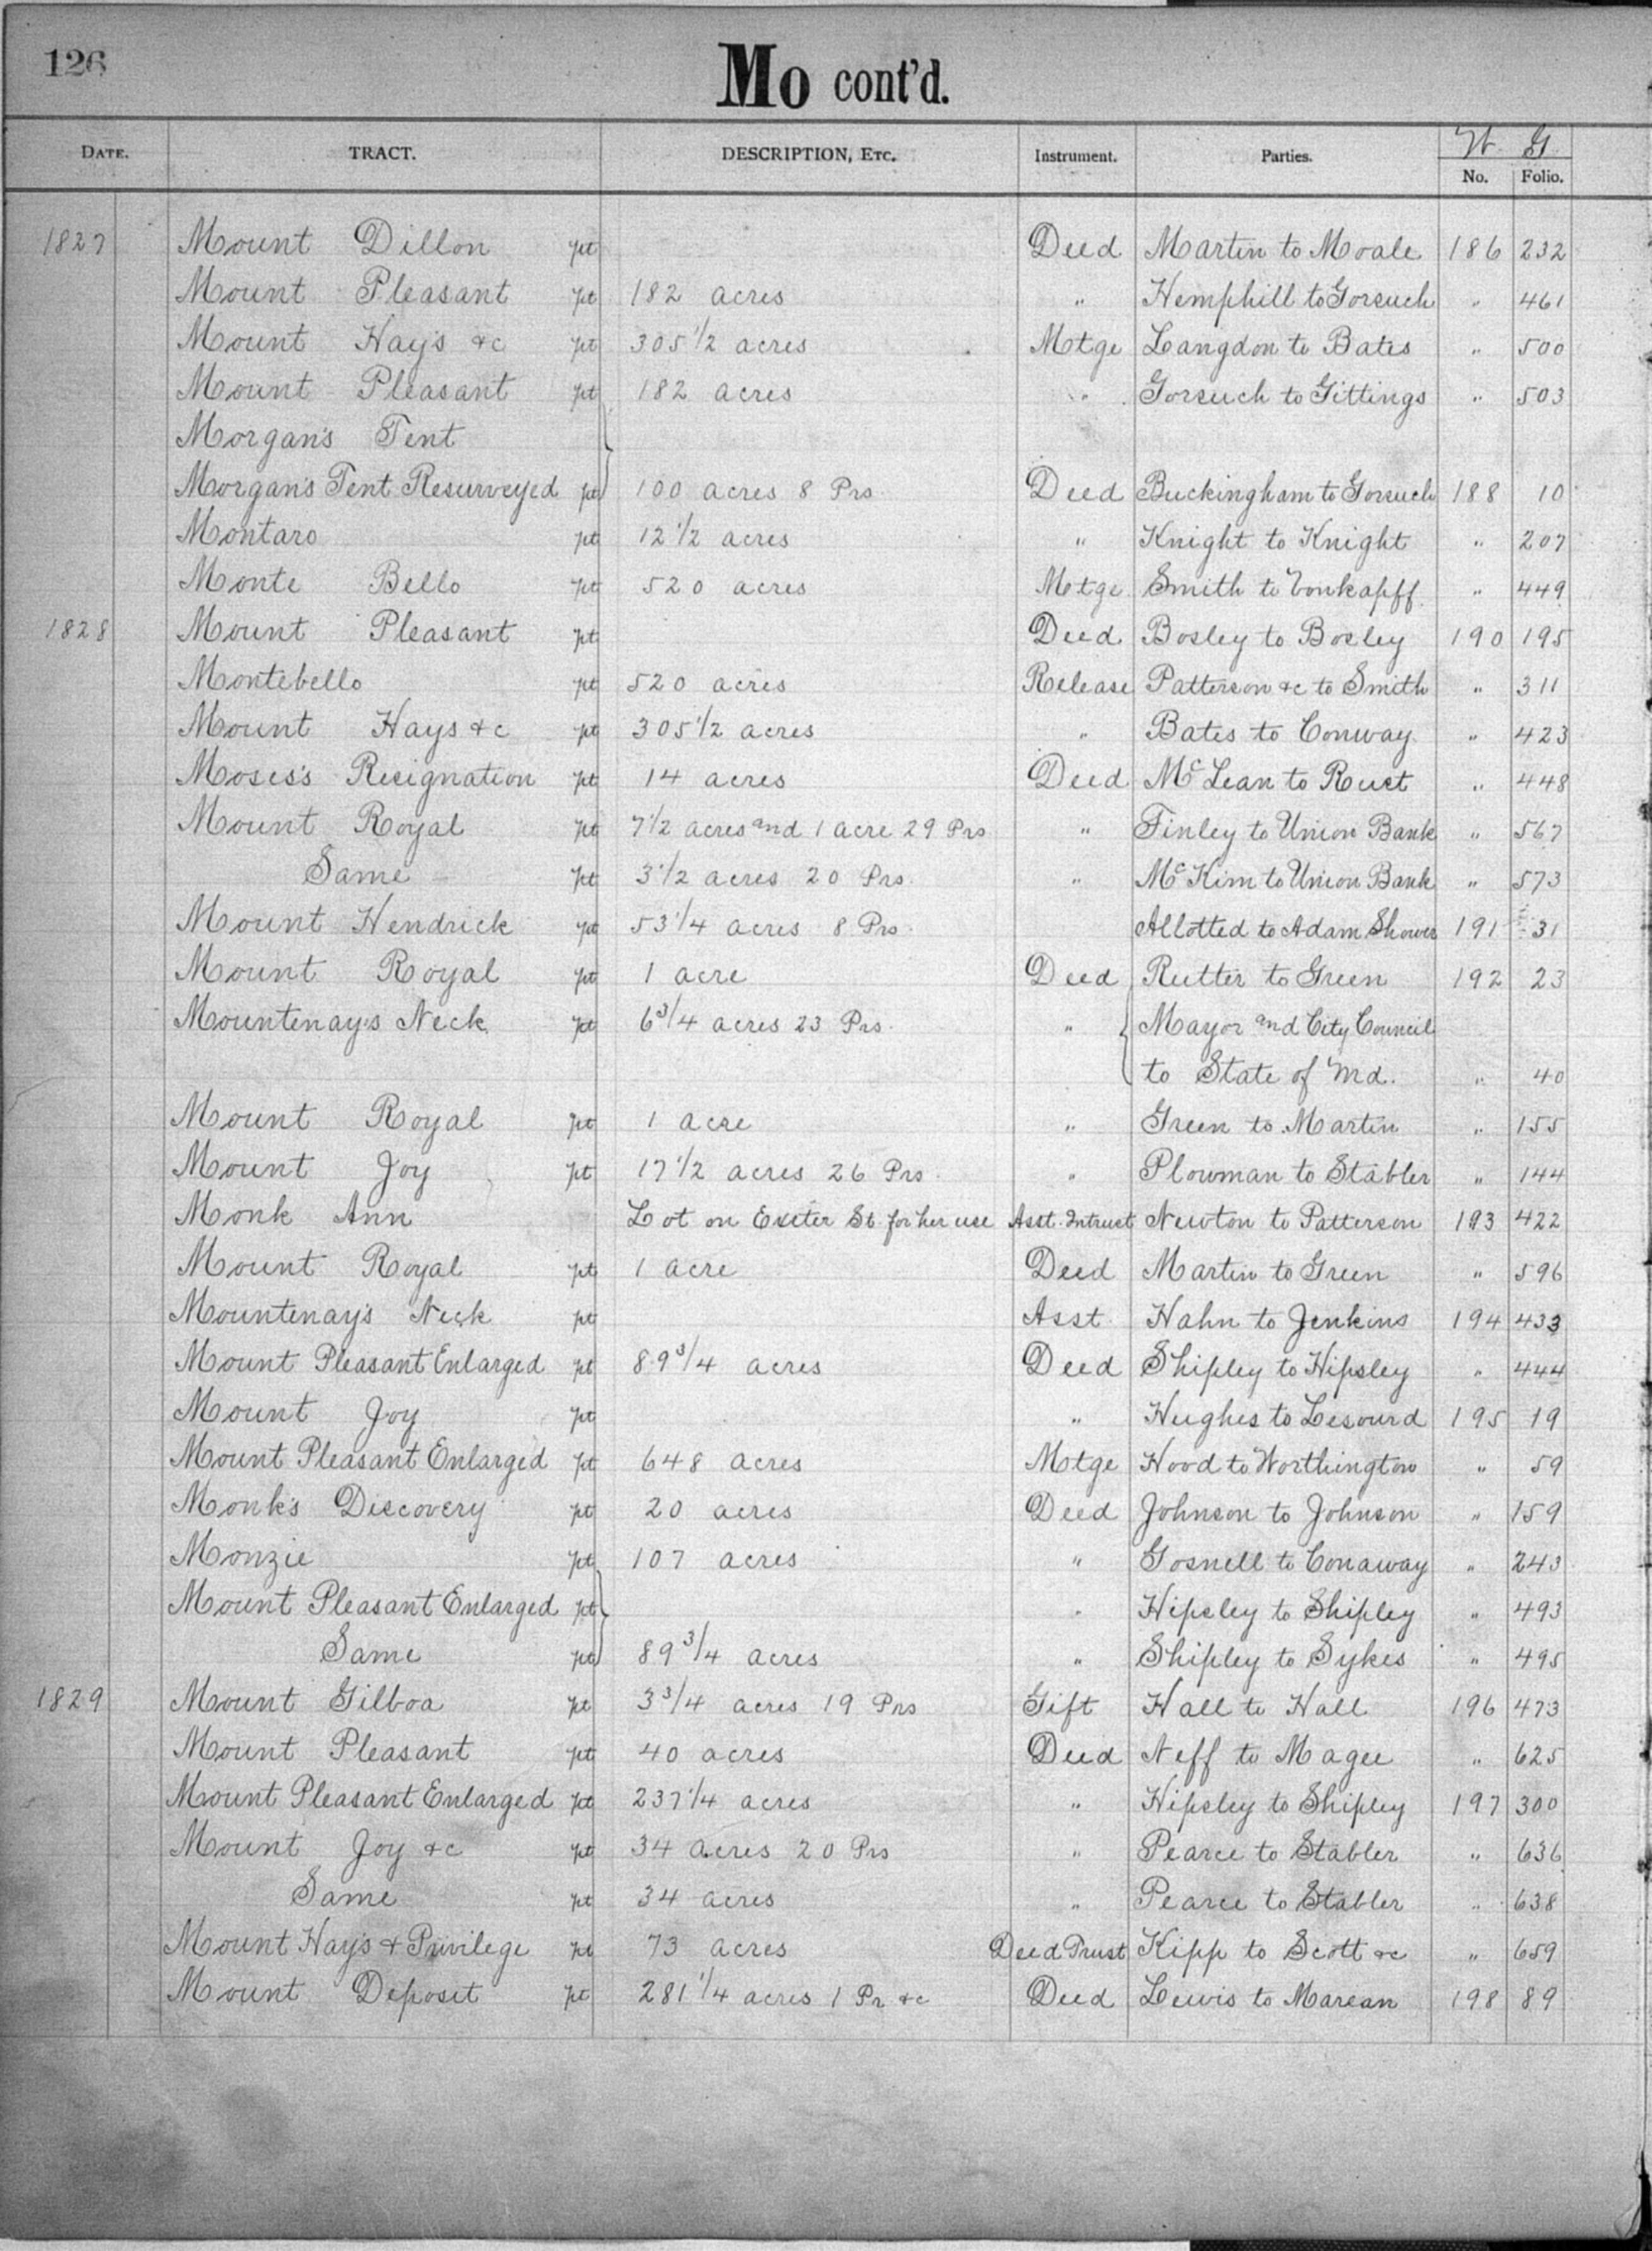 126
Mo cont'd.
DATE. TRACT. DESCRIPTION, ETC. Instrument. Parties. W G
No. Folio.
1827 Mount Dillon pt Deed Martin to Moale 186 232
Mount Pleasant pt 182 acres " Hemphill to Gorsuch " 461
Mount Hay's &c pt 305 1/2 acres Motge Langdon to Bates " 500
Mount Pleasant pt 182 acres " Gorsuch to Gittings " 503
Morgan's Tent
Morgan's Tent Resurveyed pt 100 acres 8 Prs. Deed Buckingham to Gorsuch 188 10
Montaro pt 12 1/2 acres " Knight to Knight " 207
Monte Bello pt 520 acres Motge Smith to Vonkapff " 449
1828 Mount Pleasant pt Deed Bosley to Bosley 190 195
Montebello pt 520 acres Release Patterson &c to Smith " 311
Mount Hays &c pt 305 1/2 acres " Bates to Conway " 423
Moses's Resignation pt 14 acres Deed McLean to Rust " 448
Mount Royal pt 7 1/2 acres and 1 acre 29 Prs " Finley to Union Bank " 567
Same pt 3 1/2 acres 20 Prs. " McKim to Union Bank " 573
Mount Hendrick pt 53 1/4 acres 8 Prs. Allotted to Adam Shower 191 31
Mount Royal pt 1 acre Deed Rutter to Green 192 23
Mountenay's Neck pt 6 3/4 acres 23 Prs. " Mayor and City Council
to State of Md. " 40
Mount Royal pt 1 acre " Green to Martin " 155
Mount Joy pt 17 1/2 acres 26 Prs. " Plowman to Stabler " 144
Monk Ann Lot on Exeter St. for her use Asst. Intrust Newton to Patterson 193 422
Mount Royal pt 1 acre Deed Martin to Green " 596
Mountenay's Neck pt Asst. Hahn to Jenkins 194 433
Mount Pleasant Enlarged pt 89 3/4 acres Deed Shipley to Hipsley " 444
Mount Joy pt " Hughes to Lesourd 195 19
Mount Pleasant Enlarged pt 648 acres Motge Hood to Worthington " 59
Monk's Discovery pt 20 acres Deed Johnson to Johnson " 159
Monzie pt 107 acres " Gosnell to Conaway " 243
Mount Pleasant Enlarged pt " Hipsley to Shipley " 493
Same pt 89 3/4 acres " Shipley to Sykes " 495
1829 Mount Gilboa pt 3 3/4 acres 19 Prs Gift Hall to Hall 196 473
Mount Pleasant pt 40 acres Deed Neff to Magee " 625
Mount Pleasant Enlarged pt 237 1/4 acres " Hipsley to Shipley 197 300
Mount Joy &c pt 34 acres 20 Prs " Pearce to Stabler " 636
Same pt 34 acres " Pearce to Stabler " 638
Mount Hay's & Privilege pt 73 acres Deed Trust Kipp to Scott &c " 659
Mount Deposit pt 281 1/4 acres 1 Pr &c Deed Lewis to Marean 198 89